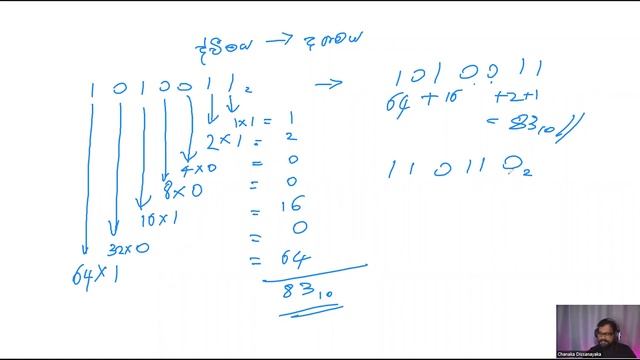 ද්විමය → දශමය
1 0 1 0 0 1 1 ₂ →
1×1 = 1
2×1 = 2
4×0 = 0
8×0 = 0
16×1 = 16
32×0 = 0
64×1 = 64
83₁₀
1 0 1 0 0 1 1
64 + 16 + 2 + 1
= 83₁₀ //
1 1 0 1 1 0 ₂
Chanaka Dissanayaka